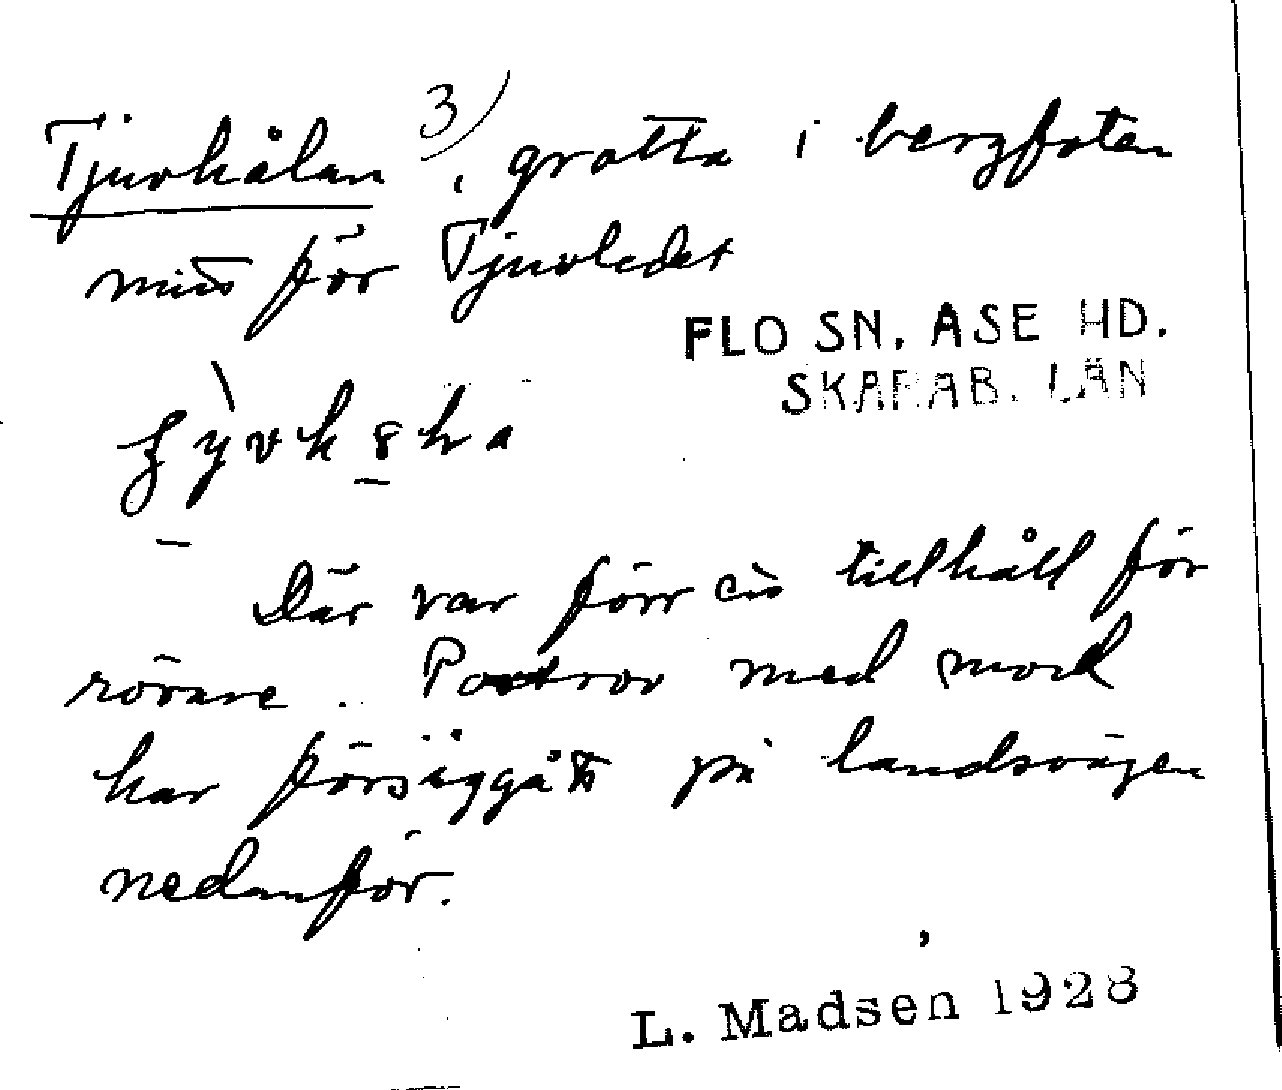 Tjuvhålan 3), grotta i bergfoten
mitt för Tjuvledet
FLO SN. ÅSE HD.
SKARAB. LÄN
Där var förr ett tillhåll för
rövare. Postrov med mord
har försiggått på landsvägen
nedanför.
L. Madsen 1928